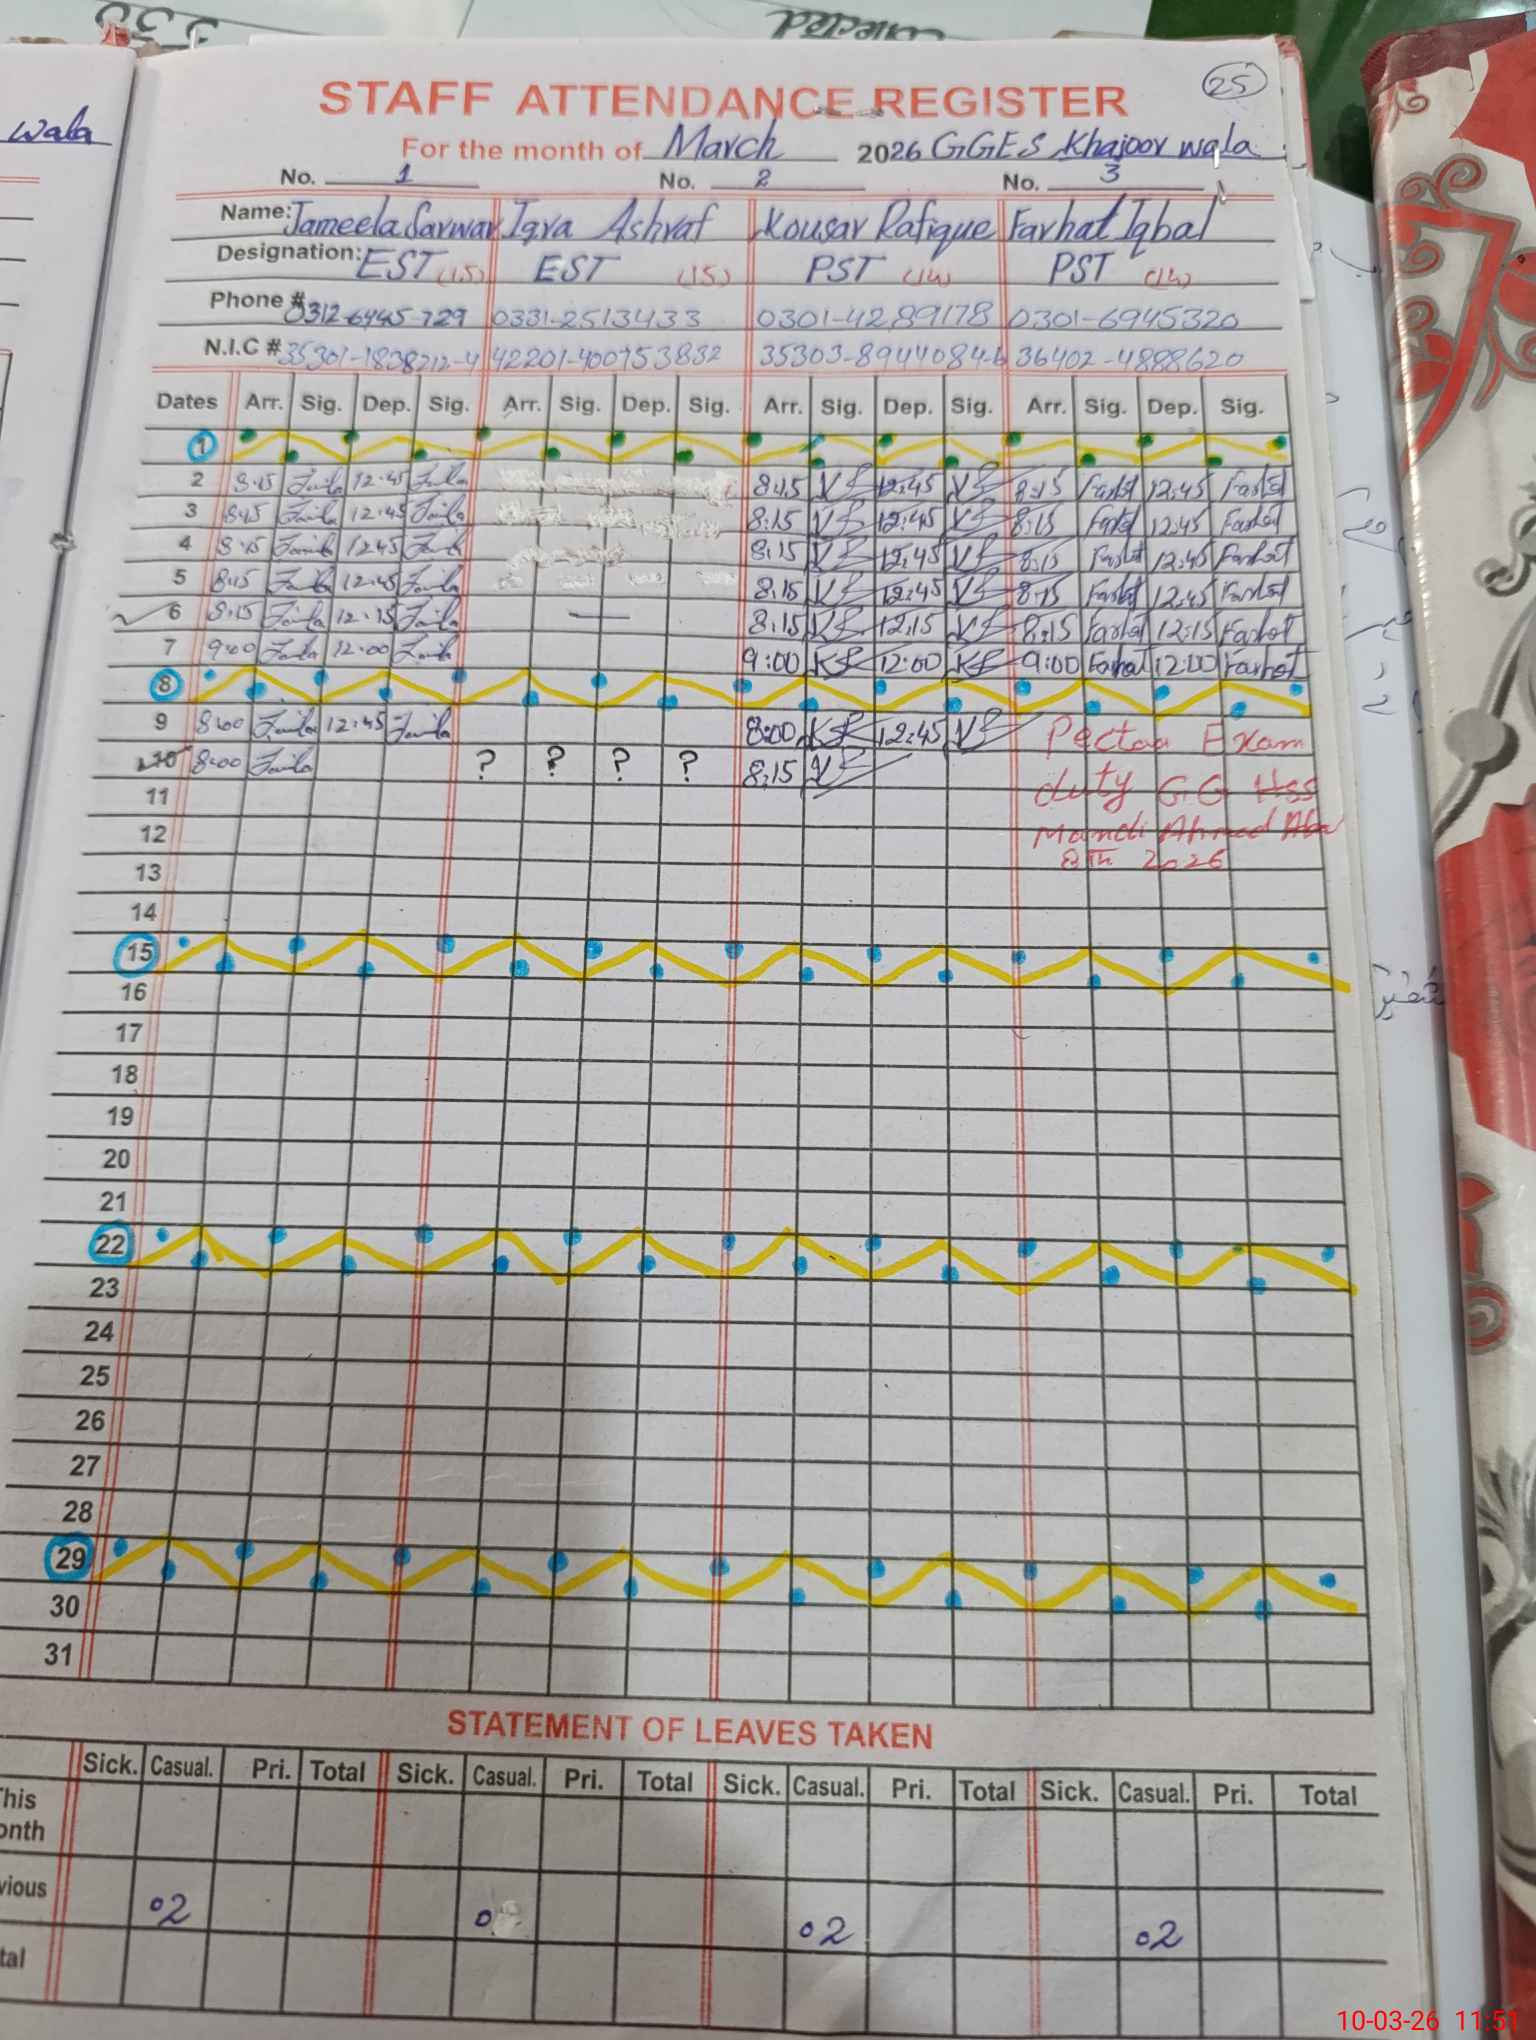 STAFF ATTENDANCE REGISTER
25
wala
For the month of March 2026 GGES Khajoor wala
No. 1 No. 2 No. 3
Name: Jameela Sarwar Iqra Ashraf Kousar Rafique Farhat Iqbal
Designation: EST (15) EST (15) PST (14) PST (14)
Phone # 0312-6945-729 0331-2513433 0301-4289178 0301-6945320
N.I.C # 35301-1838212-4 42201-400753832 35303-8944084-6 36402-4888620
Dates Arr. Sig. Dep. Sig. Arr. Sig. Dep. Sig. Arr. Sig. Dep. Sig. Arr. Sig. Dep. Sig.
1
2 8:15 12:45 8:15 12:45 8:15 Farhat 12:45 Farhat
3 8:15 12:45 8:15 12:45 8:15 Farhat 12:45 Farhat
4 8:15 12:45 8:15 12:45 8:15 Farhat 12:45 Farhat
5 8:15 12:45 8:15 12:45 8:15 Farhat 12:45 Farhat
6 8:15 12:15 — 8:15 12:15 8:15 Farhat 12:15 Farhat
7 9:00 12:00 9:00 12:00 9:00 Farhat 12:00 Farhat
8
9 8:00 12:45 8:00 12:45 Pectaa Exam
10 8:00 ? ? ? ? 8:15 duty GG Hss
11
12 Mandi Ahmed Aba
13 8th 2026
14
15
16
17
18
19
20
21
22
23
24
25
26
27
28
29
30
31
STATEMENT OF LEAVES TAKEN
Sick. Casual. Pri. Total Sick. Casual. Pri. Total Sick. Casual. Pri. Total Sick. Casual. Pri. Total
his
onth
vious 02 0 02 02
tal
10-03-26 11:51